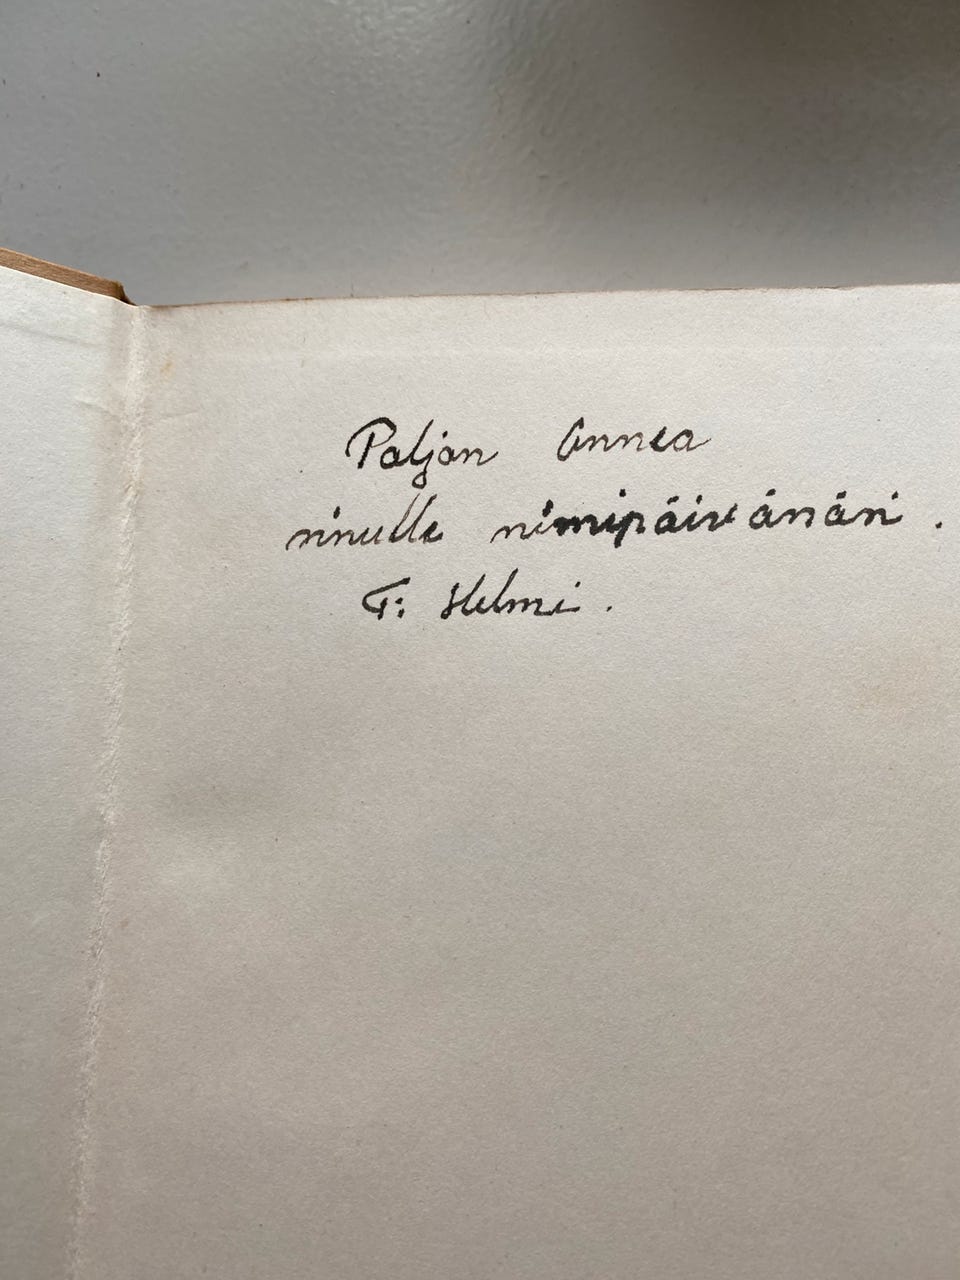 Paljon Onnea
sinulle nimipäivänäsi.
T: Helmi.